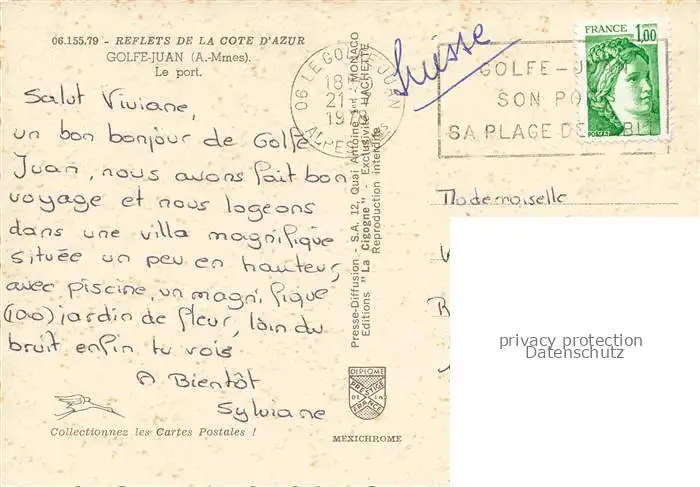 06.155.79 - REFLETS DE LA COTE D'AZUR
GOLFE-JUAN (A.-Mmes).
Le port.
Salut Viviane,
un bon bonjour de Golfe
Juan, nous avons fait bon
voyage et nous logeons
dans une villa magnifique
située un peu en hauteur,
avec piscine, un magnifique
jardin de fleur, loin du
bruit enfin tu vois
A Bientôt
Sylviane
Collectionnez les Cartes Postales !
06 LE GOLFE-JUAN
18
21
ALPES
Presse-Diffusion - S.A. 12, Quai Antoine 1er - MONACO
Editions "La Cigogne" - Exclusivité HACHETTE
Reproduction interdite
DIPLOME
PRESTIGE
DE LA
FRANCE
MEXICHROME
Suisse
FRANCE 1,00
GOLFE-J
SON PO
SA PLAGE DE BL
Mademoiselle
privacy protection
Datenschutz